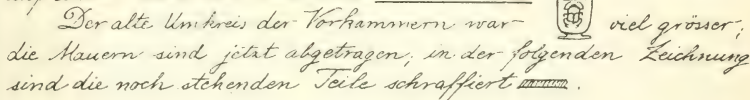 Der alte Umkreis der Vorkammern war viel grösser;
die Mauern sind jetzt abgetragen; in der folgenden Zeichnung
sind die noch stehenden Teile schraffiert.